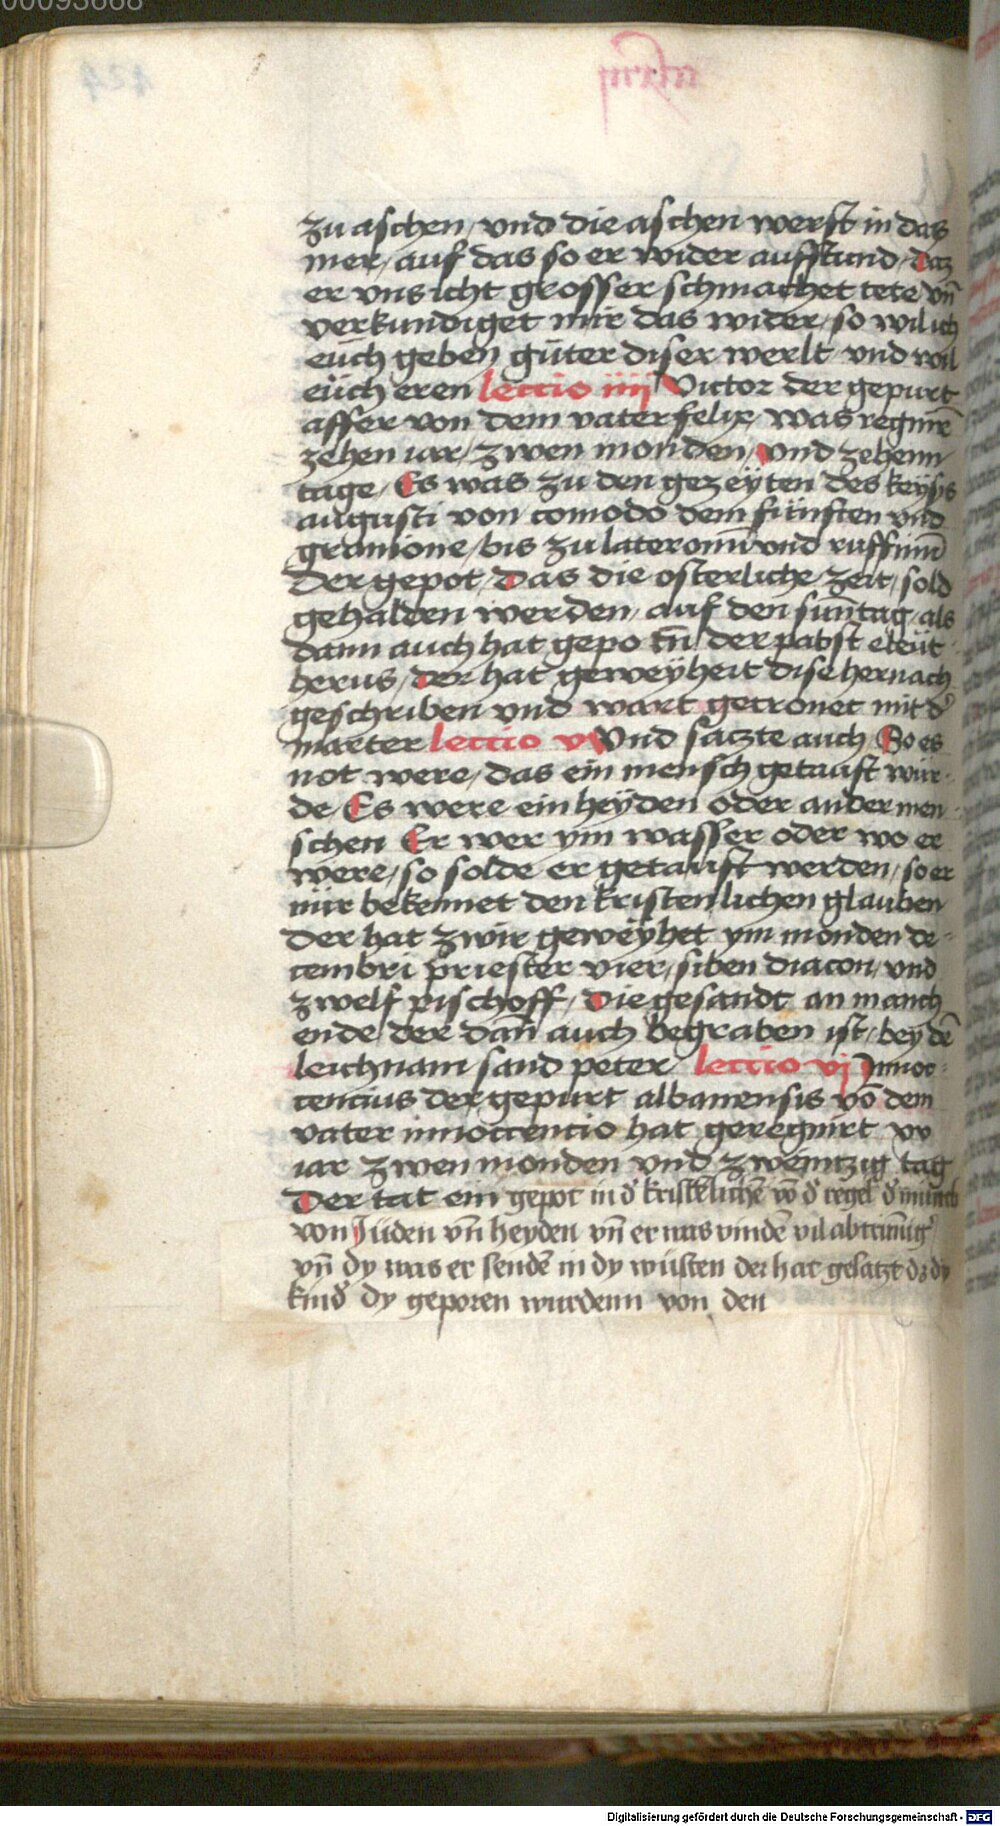 00093668
zu aschen / vnd die aschen werft in das
mer / auf das so er wider aufstund / daz
er vns icht grosser schmachet tete vn̄
verkundiget mir das wider / so wil ich
eüch geben güter diser werlt / vnd wil
eüch eren lectio iiij Victor der gepurt
affer von dem vater felix / was regnirē
zehen iar / zwen monden / vnd zehenn
tage / Es was zu den gezeyten des keysȝs
augusti von comodo dem fünften vnd
granione / bis zu lateronū vnd ruffinū
Der gepot / Das die osterliche zeit / sold
gehalden werden / auf den suntag / als
dann auch hat gepotn̄ der pabst eleüt-
herus / der hat geweyheit dise hernach
geschriben vnd wart getronet mit dˀ
marter lectio v Vnd satzte auch So es
not were / das ein mensch getauft wür-
de / Es were ein heyden oder ander men-
schen Er wer ym wasser oder wo er
were / so solde er getauft werden / so er
nür bekennet den kristenlichen glauben
Der hat zwir geweyhet ym monden de-
cembri priester vier / siben diacon / vnd
zwelf pischoff / Die gesandt an manch
ende der dan̄ auch begraben ist / bey dē
leichnam sand peter lectio vj Innoc-
cencius der gepurt albanensis vō dem
vater innoccencio hat geregnirt xv
iar zwen monden vnd zweintzig tag
Der tat ein gepot in dˀ kristēlichē vō dˀ regel dˀ münch
von Jüden vn̄ heyden vn̄ er was vindē vil abtrinnigˀ
vn̄ dy was er sendē in dy wüsten der hat gesatzt dz dy
kindˀ dy geporen wurdenn von den
Digitalisierung gefördert durch die Deutsche Forschungsgemeinschaft - DFG